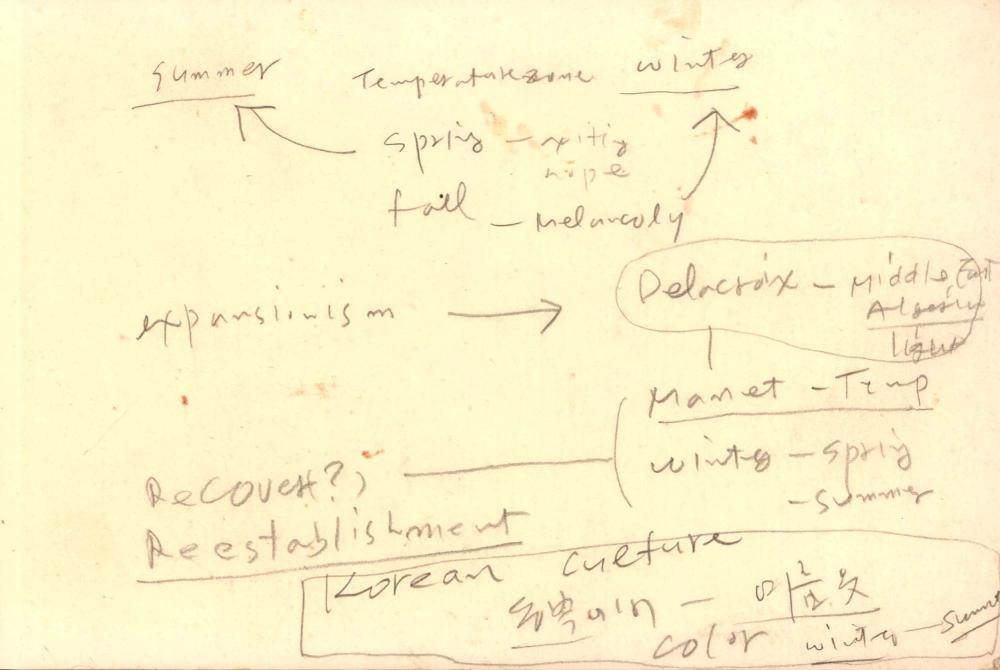 Summer Temperaturezone winter
Spring - exiting
hope
fall - Melancoly
Delacroix - Middle East
expansionism Algeria
light
Manet - Temp
winter - Spring
- summer
Recover?,
Reestablishment
Korean culture
color winter - summ